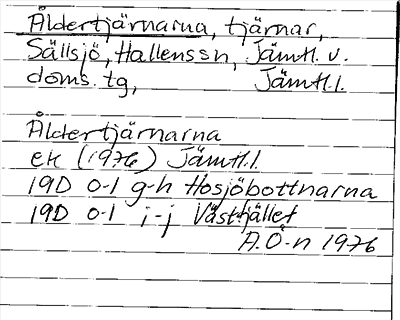 Åldertjärnarna, tjärnar,
Sällsjö, Hallenssn, Jämtl. v.
doms. tg, Jämtl.l.
Åldertjärnarna
ek (1976) Jämtl.l.
19D 0-1 g-h Hosjöbottnarna
19D 0-1 i-j Västfjället
A.Ö-n 1976